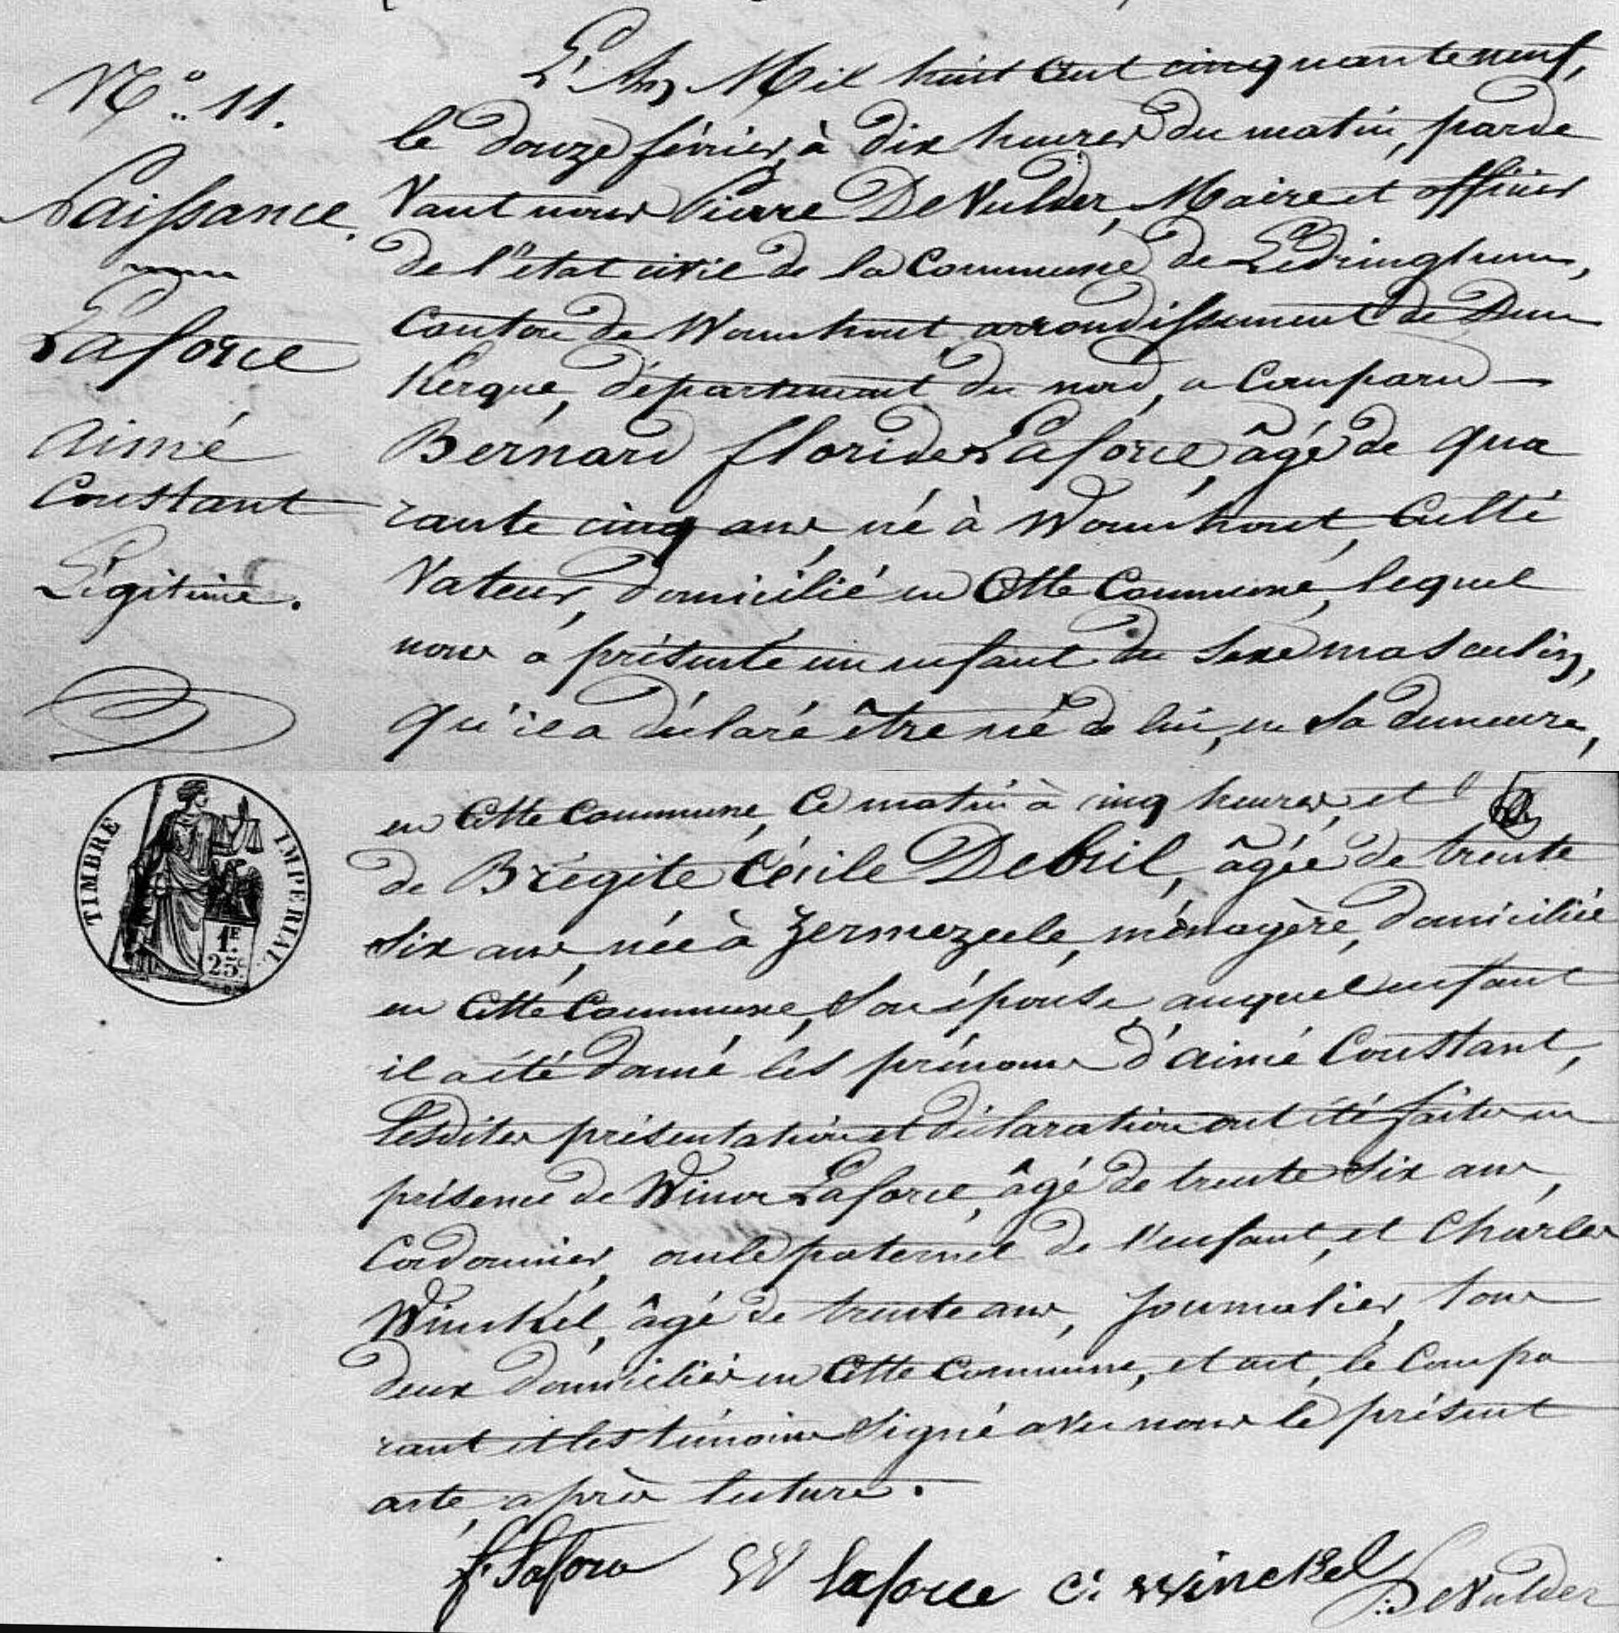 N.° 11.
Naissance.
Laforce
Aimé
Constant
Légitime.
L'An Mil huit cent cinquante neuf,
le douze février, à dix heures du matin, parde
vant nous Pierre DeVulder, Maire et officier
de l'état civil de la commune de Ledringhem,
canton de Wormhout, arrondissement de Dun
kerque, département du nord, a comparu —
Bernard floride Laforce, âgé de qua
rante cinq ans, né à Wormhout, culti
vateur, domicilié en cette commune, lequel
nous a présenté un enfant du sexe masculin,
qu'il a déclaré être né de lui, en sa demeure,
TIMBRE IMPERIAL
1F
25c
en cette commune, ce matin à cinq heures, et
de Brégite Cécile Debril, âgée de trente
six ans, née à Zermezeele, ménagère, domiciliée
en cette commune, son épouse, auquel enfant
il a été donné les prénoms d'aimé Constant,
lesdites présentation et déclaration ont été faites en
présence de Winoc Laforce, âgé de trente six ans,
Cordonnier, oncle paternel de l'enfant, et Charles
Winckel, âgé de trente ans, journalier, tous
deux domiciliés en cette commune, et ont, le compa
rant et les témoins signé avec nous le présent
acte, après lecture.
f. Laforce W Laforce c. winckel DeVulder